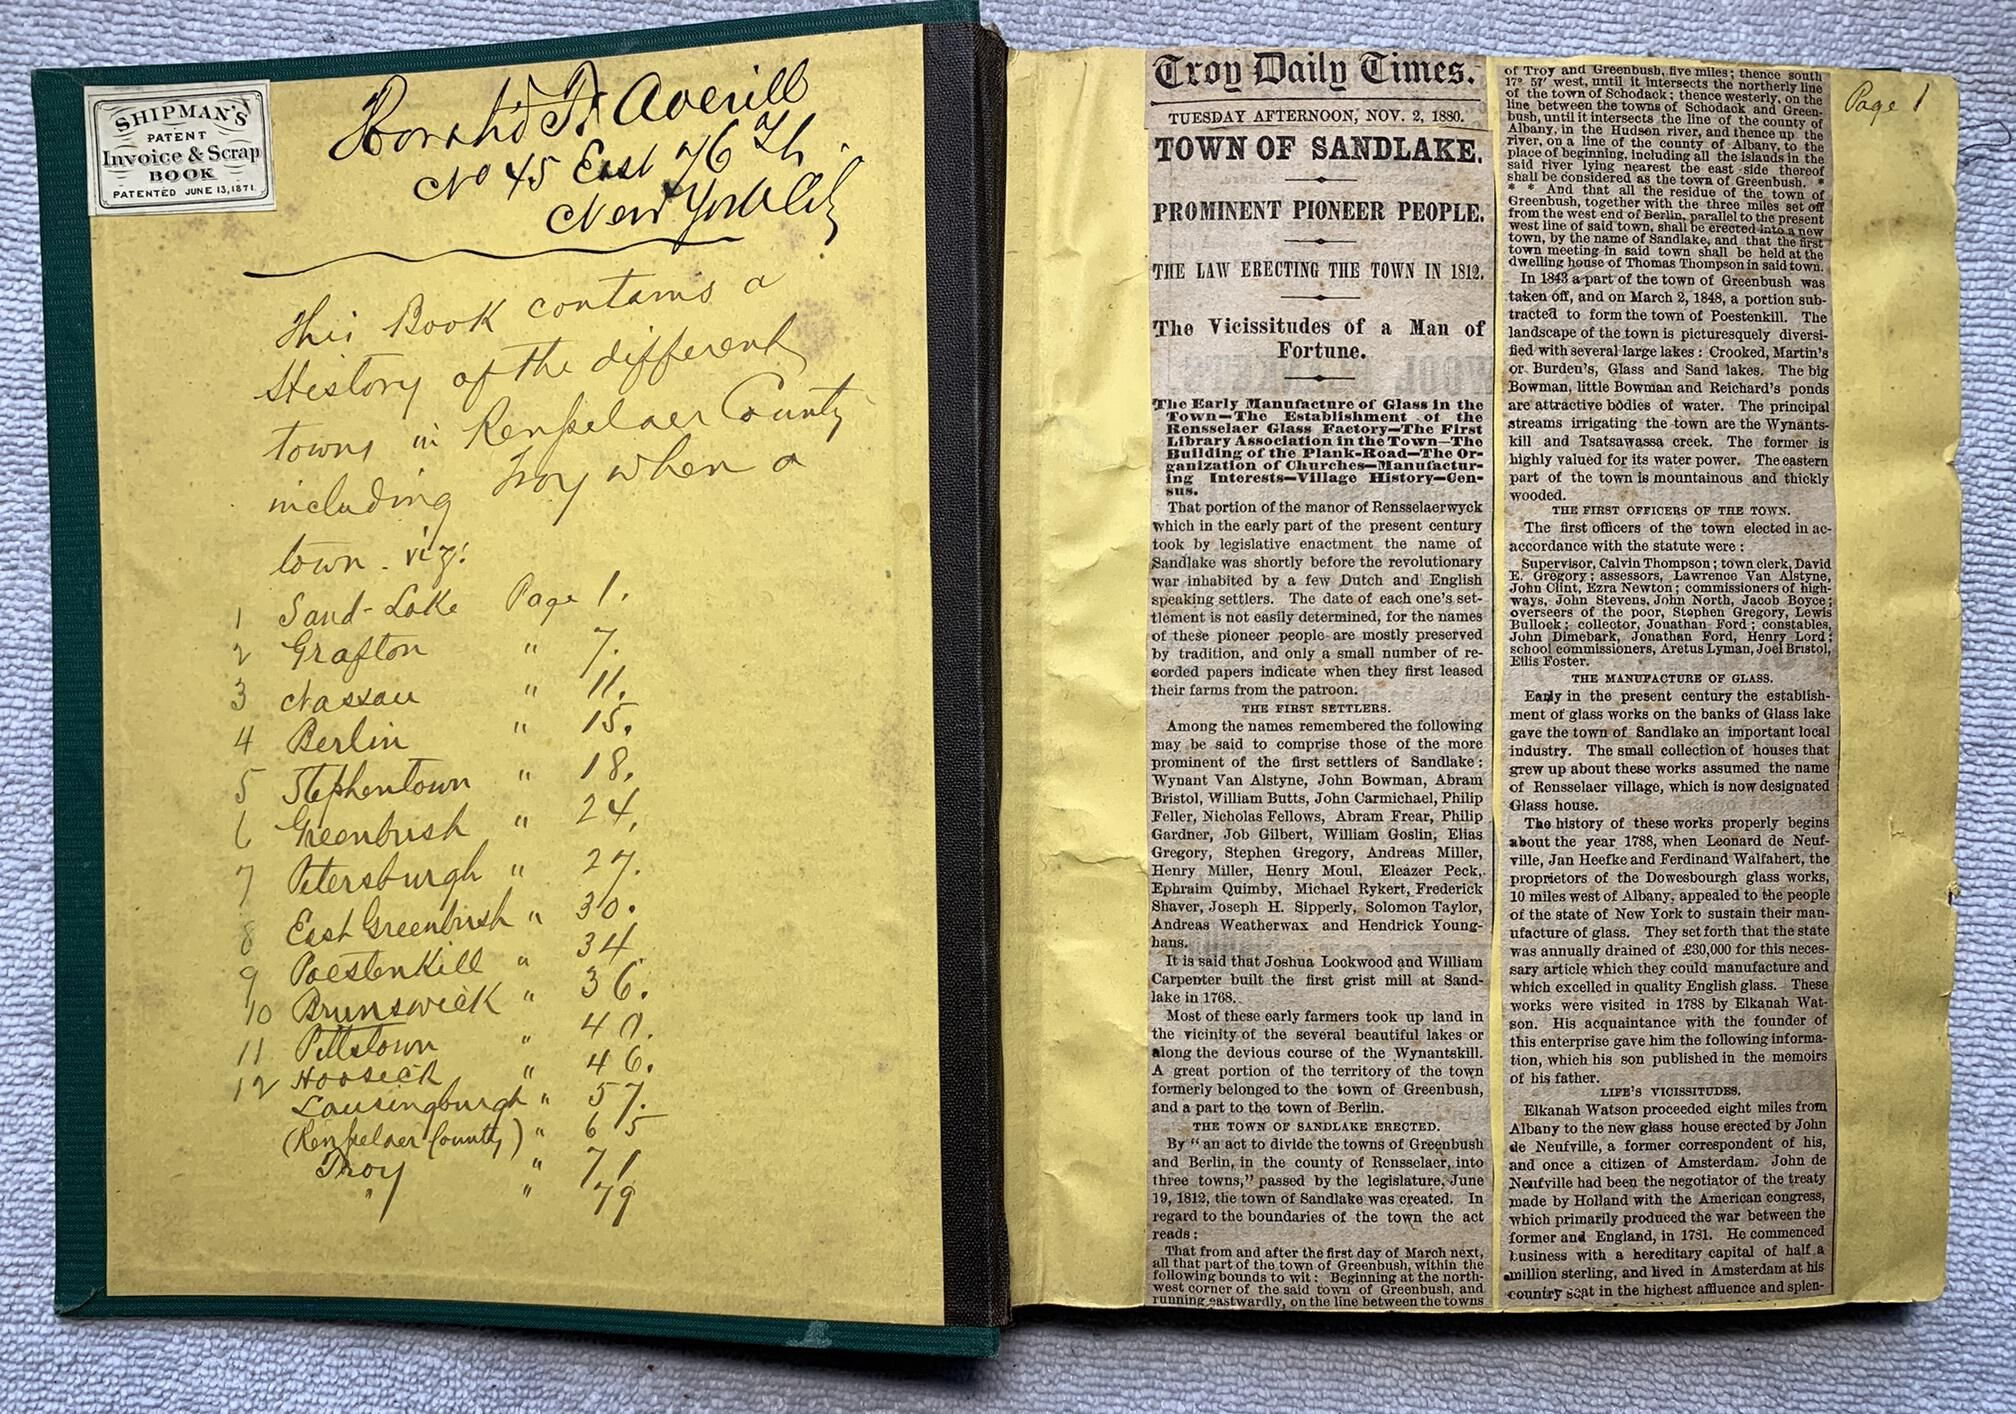 SHIPMAN'S
PATENT
Invoice & Scrap
BOOK
PATENTED JUNE 13, 1871.
Averill
No 45 East 76 Th.
New York City
This Book contains a
History of the different
towns in Rensselaer County
including Troy when a
town. viz:
1 Sand-Lake Page 1.
2 Grafton " 7.
3 Nassau " 11.
4 Berlin " 15.
5 Stephentown " 18.
6 Greenbush " 24.
7 Petersburgh " 27.
8 East Greenbush " 30.
9 Poestenkill " 34
10 Brunswick " 36.
11 Pittstown " 40.
12 Hoosick " 46.
Lansingburgh " 57.
(Rensselaer County) " 65
Troy " 71
" " 79
Troy Daily Times.
TUESDAY AFTERNOON, NOV. 2, 1880.
TOWN OF SANDLAKE.
PROMINENT PIONEER PEOPLE.
THE LAW ERECTING THE TOWN IN 1812.
The Vicissitudes of a Man of
Fortune.
The Early Manufacture of Glass in the
Town—The Establishment of the
Rensselaer Glass Factory—The First
Library Association in the Town—The
Building of the Plank-Road—The Or-
ganization of Churches—Manufactur-
ing Interests—Village History—Cen-
sus.
That portion of the manor of Rensselaerwyck
which in the early part of the present century
took by legislative enactment the name of
Sandlake was shortly before the revolutionary
war inhabited by a few Dutch and English
speaking settlers. The date of each one's set-
tlement is not easily determined, for the names
of these pioneer people are mostly preserved
by tradition, and only a small number of re-
corded papers indicate when they first leased
their farms from the patroon.
THE FIRST SETTLERS.
Among the names remembered the following
may be said to comprise those of the more
prominent of the first settlers of Sandlake:
Wynant Van Alstyne, John Bowman, Abram
Bristol, William Butts, John Carmichael, Philip
Feller, Nicholas Fellows, Abram Frear, Philip
Gardner, Job Gilbert, William Goslin, Elias
Gregory, Stephen Gregory, Andreas Miller,
Henry Miller, Henry Moul, Eleazer Peck,
Ephraim Quimby, Michael Rykert, Frederick
Shaver, Joseph H. Sipperly, Solomon Taylor,
Andreas Weatherwax and Hendrick Young-
hans.
It is said that Joshua Lockwood and William
Carpenter built the first grist mill at Sand-
lake in 1768.
Most of these early farmers took up land in
the vicinity of the several beautiful lakes or
along the devious course of the Wynantskill.
A great portion of the territory of the town
formerly belonged to the town of Greenbush,
and a part to the town of Berlin.
THE TOWN OF SANDLAKE ERECTED.
By "an act to divide the towns of Greenbush
and Berlin, in the county of Rensselaer, into
three towns," passed by the legislature, June
19, 1812, the town of Sandlake was created. In
regard to the boundaries of the town the act
reads:
That from and after the first day of March next,
all that part of the town of Greenbush, within the
following bounds to wit: Beginning at the north-
west corner of the said town of Greenbush, and
running eastwardly, on the line between the towns
of Troy and Greenbush, five miles; thence south
17° 57' west, until it intersects the northerly line
of the town of Schodack; thence westerly, on the
line between the towns of Schodack and Green-
bush, until it intersects the line of the county of
Albany, in the Hudson river, and thence up the
river, on a line of the county of Albany, to the
place of beginning, including all the islands in the
said river lying nearest the east side thereof
shall be considered as the town of Greenbush. *
* * And that all the residue of the town of
Greenbush, together with the three miles set off
from the west end of Berlin, parallel to the present
west line of said town, shall be erected into a new
town, by the name of Sandlake, and that the first
town meeting in said town shall be held at the
dwelling house of Thomas Thompson in said town.
In 1843 a part of the town of Greenbush was
taken off, and on March 2, 1848, a portion sub-
tracted to form the town of Poestenkill. The
landscape of the town is picturesquely diversi-
fied with several large lakes: Crooked, Martin's
or Burden's, Glass and Sand lakes. The big
Bowman, little Bowman and Reichard's ponds
are attractive bodies of water. The principal
streams irrigating the town are the Wynants-
kill and Tsatsawassa creek. The former is
highly valued for its water power. The eastern
part of the town is mountainous and thickly
wooded.
THE FIRST OFFICERS OF THE TOWN.
The first officers of the town elected in ac-
accordance with the statute were:
Supervisor, Calvin Thompson; town clerk, David
E. Gregory; assessors, Lawrence Van Alstyne,
John Clint, Ezra Newton; commissioners of high-
ways, John Stevens, John North, Jacob Boyce;
overseers of the poor, Stephen Gregory, Lewis
Bullock; collector, Jonathan Ford; constables,
John Dimebark, Jonathan Ford, Henry Lord;
school commissioners, Aretus Lyman, Joel Bristol,
Ellis Foster.
THE MANUFACTURE OF GLASS.
Early in the present century the establish-
ment of glass works on the banks of Glass lake
gave the town of Sandlake an important local
industry. The small collection of houses that
grew up about these works assumed the name
of Rensselaer village, which is now designated
Glass house.
The history of these works properly begins
about the year 1788, when Leonard de Neuf-
ville, Jan Heefke and Ferdinand Walfahert, the
proprietors of the Dowesbourgh glass works,
10 miles west of Albany, appealed to the people
of the state of New York to sustain their man-
ufacture of glass. They set forth that the state
was annually drained of £30,000 for this neces-
sary article which they could manufacture and
which excelled in quality English glass. These
works were visited in 1788 by Elkanah Wat-
son. His acquaintance with the founder of
this enterprise gave him the following informa-
tion, which his son published in the memoirs
of his father.
LIFE'S VICISSITUDES.
Elkanah Watson proceeded eight miles from
Albany to the new glass house erected by John
de Neufville, a former correspondent of his,
and once a citizen of Amsterdam. John de
Neufville had been the negotiator of the treaty
made by Holland with the American congress,
which primarily produced the war between the
former and England, in 1781. He commenced
business with a hereditary capital of half a
million sterling, and lived in Amsterdam at his
country seat in the highest affluence and splen-
Page 1